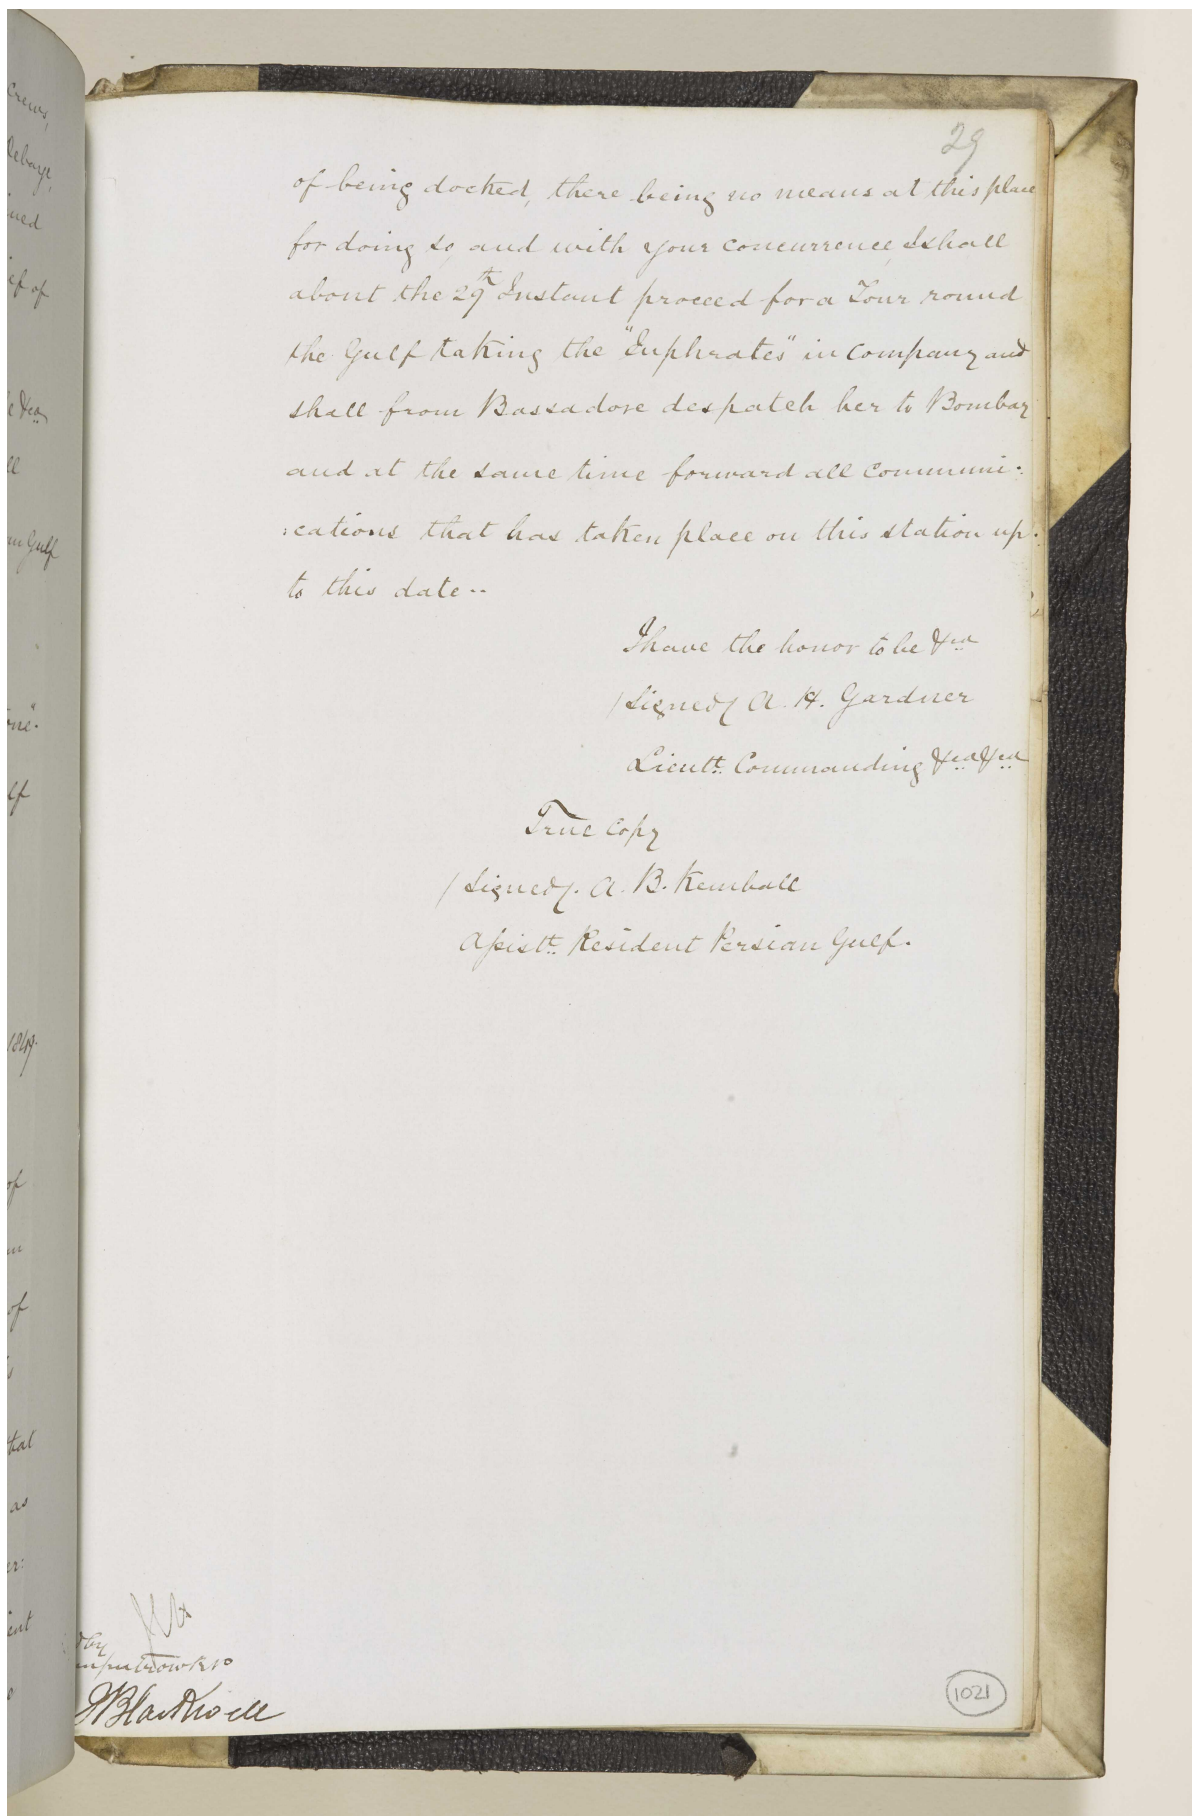 29
of being docked, there being no means at this place
for doing so, and with your concurrence, I shall
about the 29th Instant proceed for a Tour round
the Gulf taking the "Euphrates" in Company and
shall from Bassadore despatch her to Bombay
and at the same time forward all communi:
:cations that has taken place on this station up
to this date --
I have the honor to be &ca
/Signed/ A. H. Gardner
Lieutt. Commanding &ca &ca
True Copy
/Signed/. A. B. Kemball
Assistt. Resident Persian Gulf.
JBlackwell
1021
crews,
ined
of
ll
Gulf
1849.
of
of
as